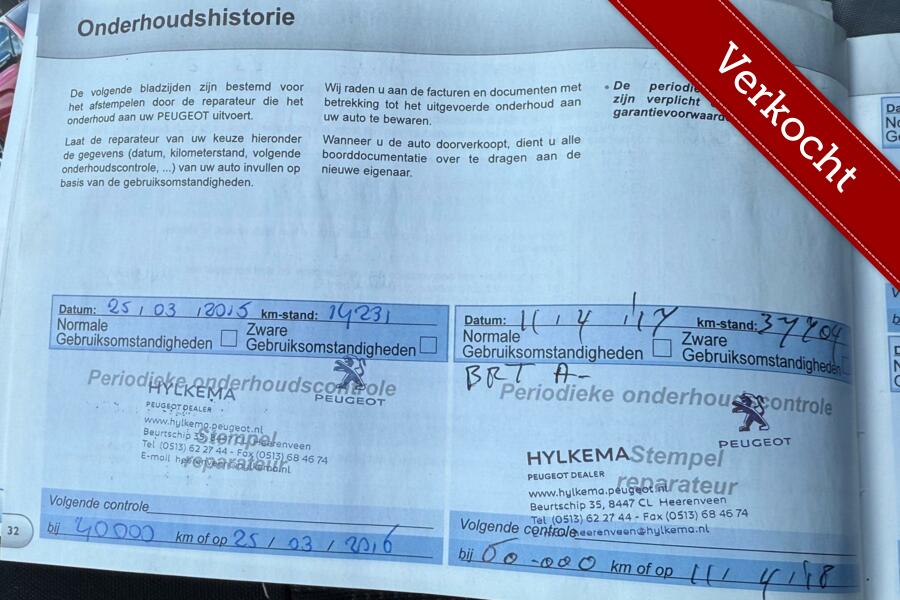 Onderhoudshistorie
De volgende bladzijden zijn bestemd voor
het afstempelen door de reparateur die het
onderhoud aan uw PEUGEOT uitvoert.
Laat de reparateur van uw keuze hieronder
de gegevens (datum, kilometerstand, volgende
onderhoudscontrole, ...) van uw auto invullen op
basis van de gebruiksomstandigheden.
Wij raden u aan de facturen en documenten met
betrekking tot het uitgevoerde onderhoud aan
uw auto te bewaren.
Wanneer u de auto doorverkoopt, dient u alle
boorddocumentatie over te dragen aan de
nieuwe eigenaar.
• De
zijn verplicht
Verkocht
Datum: 25 / 03 / 2015 km-stand: 19231
Normale
Gebruiksomstandigheden
Zware
Gebruiksomstandigheden
Periodieke onderhoudscontrole
HYLKEMA
PEUGEOT DEALER
PEUGEOT
www.hylkema.peugeot.nl
Beurtschip 35, Heerenveen
Tel (0513) 62 27 44 - Fax (0513) 68 46 74
Stempel
reparateur
Volgende controle
bij 40000 km of op 25 / 03 / 2016
32
Datum: 11 / 4 / 17 km-stand: 37204
Normale
Gebruiksomstandigheden
Zware
Gebruiksomstandigheden
BRT A-
Periodieke onderhoudscontrole
PEUGEOT
HYLKEMA
PEUGEOT DEALER
Stempel
reparateur
www.hylkema.peugeot.nl
Beurtschip 35, 8447 CL Heerenveen
Tel (0513) 62 27 44 - Fax (0513) 68 46 74
Volgende controle
bij 60-000 km of op 11 / 4 / 18